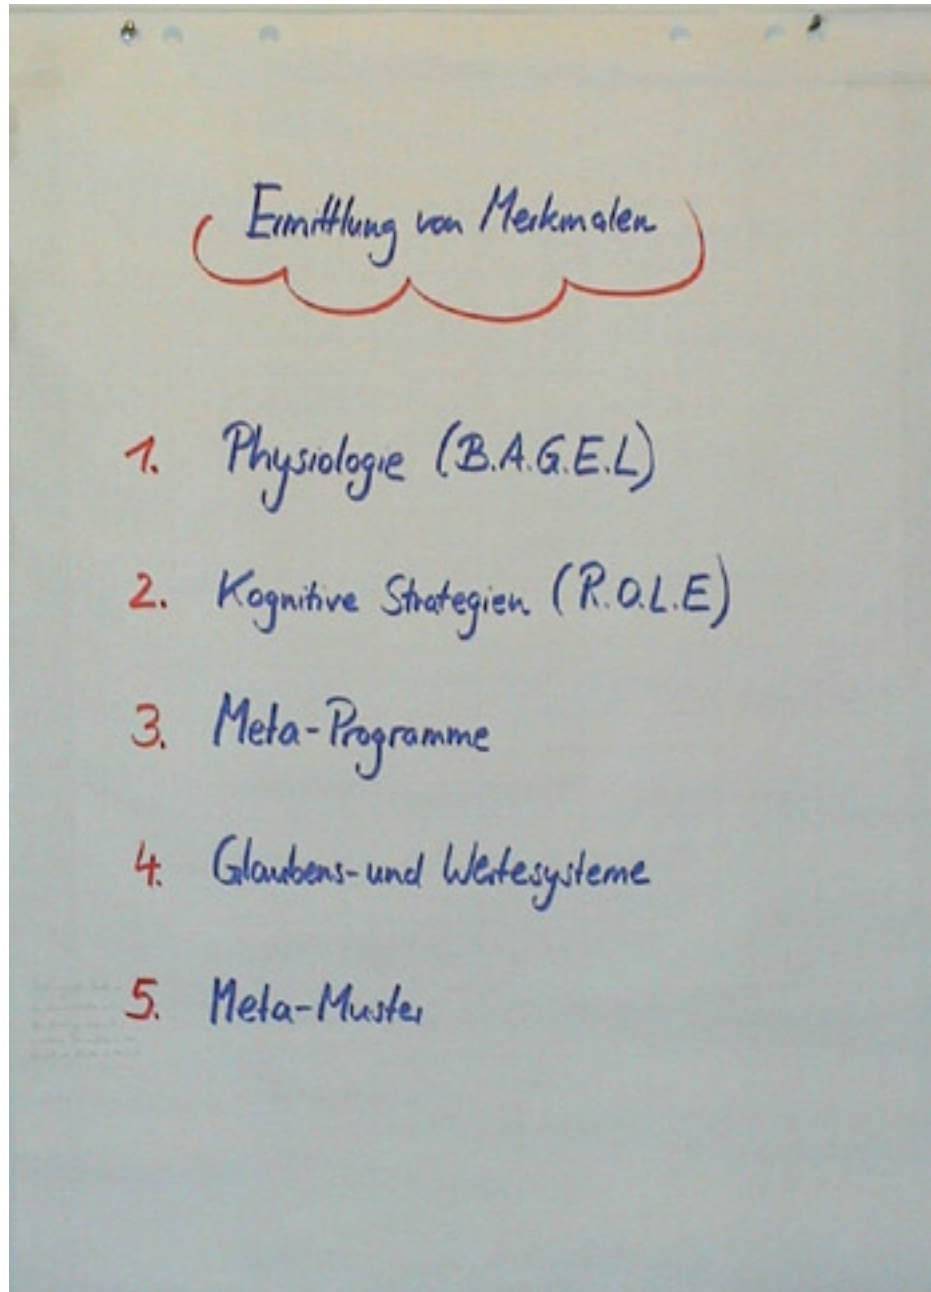 Ermittlung von Merkmalen
1. Physiologie (B.A.G.E.L)
2. Kognitive Strategien (R.O.L.E)
3. Meta-Programme
4. Glaubens- und Wertesysteme
5. Meta-Muster